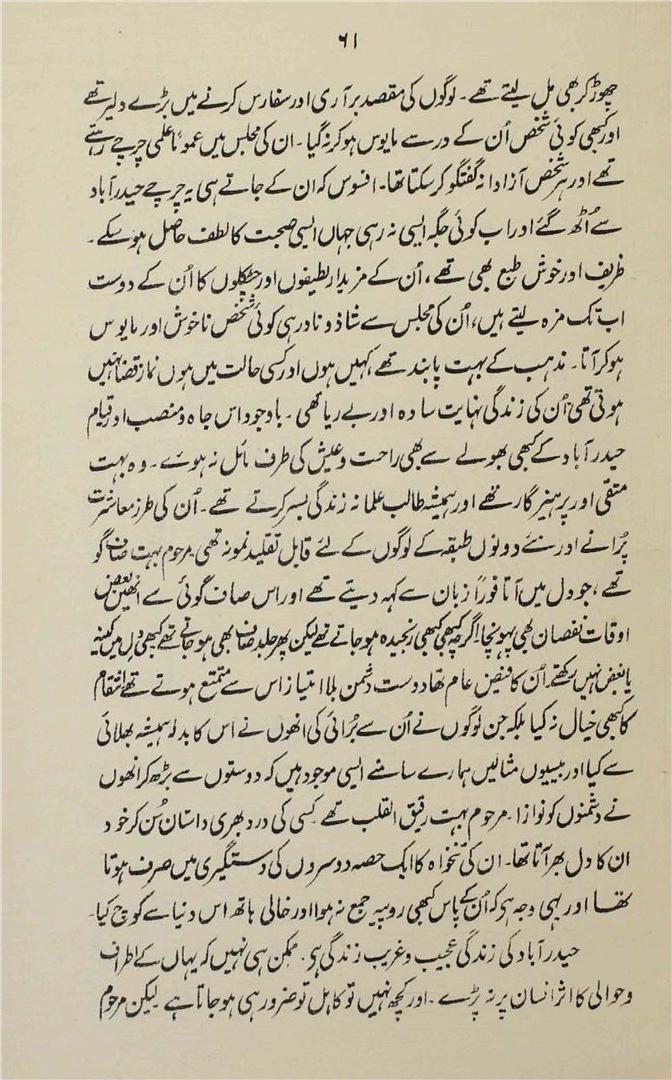 ۶۱
چھوڑ کر بھی مل لیتے تھے ۔ لوگوں کی مقصد برآری اور سفارس کرنے میں بڑے دلیر تھے
اور کبھی کوئی شخص اُن کے در سے مایوس ہو کر نہ گیا ۔ ان کی مجلس میں عموماً علمی چرچے رہتے
تھے اور ہر شخص آزادانہ گفتگو کر سکتا تھا۔ افسوس کہ ان کے جاتے ہی یہ چرچے حیدرآباد
سے اُٹھ گئے اور اب کوئی جگہ ایسی نہ رہی جہاں ایسی صحبت کا لطف حاصل ہو سکے ۔
ظریف اور خوش طبع بھی تھے ، اُن کے مزیدار لطیفوں اور چٹکلوں کا اُن کے دوست
اب تک مزہ لیتے ہیں، اُن کی مجلس سے شاذ و نادر ہی کوئی شخص ناخوش اور مایوس
ہو کر آتا ۔ مذہب کے بہت پابند تھے، کہیں ہوں اور کسی حالت میں ہوں نماز قضا نہیں
ہوتی تھی، اُن کی زندگی نہایت سادہ اور بے ریا تھی ۔ باوجود اس جاہ و منصب اور قیام
حیدرآباد کے کبھی بھولے سے بھی راحت و عیش کی طرف مائل نہ ہوے ۔ وہ بہت
متقی اور پرہیزگار تھے اور ہمیشہ طالب علمانہ زندگی بسر کرتے تھے ۔ اُن کی طرز معاشرت
پُرانے اور نئے دونوں طبقہ کے لوگوں کے لئے قابل تقلید نمونہ تھی، مرحوم بہت صاف گو
تھے ، جو دل میں آتا فوراً زبان سے کہہ دیتے تھے اور اس صاف گوئی سے انھیں بعض
اوقات نقصان بھی پہونچا، اگرچہ کبھی کبھی رنجیدہ ہو جاتے تھے لیکن پھر جلد صاف بھی ہو جاتے تھے کبھی دل میں کینہ
یا بغض نہیں رکھتے۔ اُن کا فیض عام تھا دوست دشمن بلا امتیاز اس سے متمتع ہوتے تھے، انتقام
کا کبھی خیال نہ کیا بلکہ جن لوگوں نے اُن سے بُرائی کی انھوں نے اس کا بدلہ ہمیشہ بھلائی
سے کیا اور بیسیوں مثالیں ہمارے سامنے ایسی موجود ہیں کہ دوستوں سے بڑھ کر انھوں
نے دشمنوں کو نوازا۔ مرحوم بہت رقیق القلب تھے کسی کی درد بھری داستان سُن کر خود
ان کا دل بھر آتا تھا۔ ان کی تنخواہ کا ایک حصہ دوسروں کی دستگیری میں صرف ہوتا
تھا اور یہی وجہ ہی کہ اُن کے پاس کبھی روپیہ جمع نہ ہوا اور خالی ہاتھ اس دنیا سے کوچ کیا۔
حیدرآباد کی زندگی عجیب و غریب زندگی ہی ۔ ممکن ہی نہیں کہ یہاں کے اطراف
و حوالی کا اثر انسان پر نہ پڑے ۔ اور کچھ نہیں تو کاہل تو ضرور ہی ہو جاتا ہے لیکن مرحوم